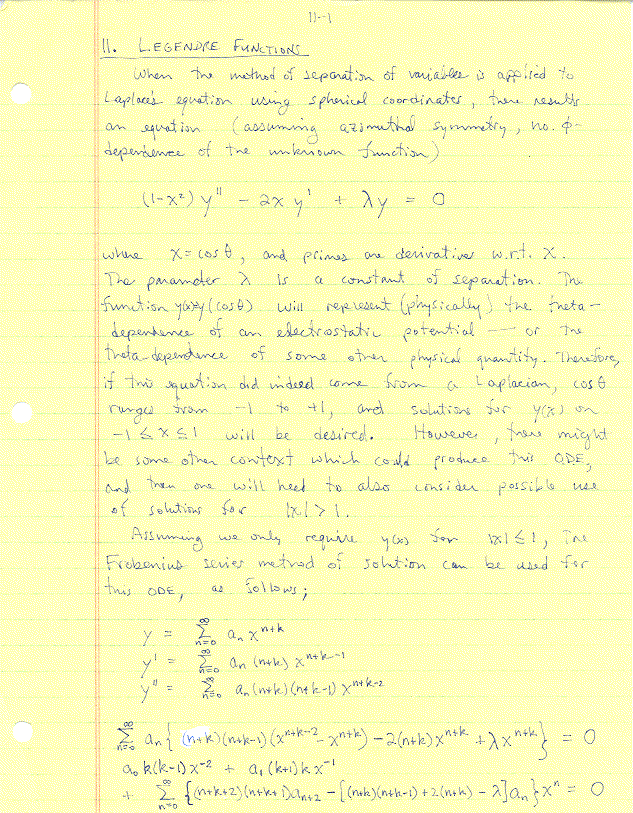 11--1
11. LEGENDRE FUNCTIONS
When the method of separation of variables is applied to
Laplace's equation using spherical coordinates, there results
an equation (assuming azimuthal symmetry, no φ-
dependence of the unknown function)
(1-x²) y'' - 2x y' + λy = 0
where x = cos θ, and primes are derivatives w.r.t. x.
The parameter λ is a constant of separation. The
function y(x)=y(cos θ) will represent (physically) the theta-
dependence of an electrostatic potential -- or the
theta-dependence of some other physical quantity. Therefore,
if this equation did indeed come from a Laplacian, cos θ
ranges from -1 to +1, and solutions for y(x) on
-1 ≤ x ≤ 1 will be desired. However, there might
be some other context which could produce this ODE,
and then one will need to also consider possible use
of solutions for |x| > 1.
Assuming we only require y(x) for |x| ≤ 1, the
Frobenius series method of solution can be used for
this ODE, as follows;
y = Σ_{n=0}^{∞} a_n x^{n+k}
y' = Σ_{n=0}^{∞} a_n (n+k) x^{n+k-1}
y'' = Σ_{n=0}^{∞} a_n (n+k)(n+k-1) x^{n+k-2}
Σ_{n=0}^{∞} a_n { (n+k)(n+k-1)(x^{n+k-2} - x^{n+k}) - 2(n+k)x^{n+k} + λx^{n+k} } = 0
a_0 k(k-1) x^{-2} + a_1 (k+1)k x^{-1}
+ Σ_{n=0}^{∞} {(n+k+2)(n+k+1)a_{n+2} - [(n+k)(n+k-1) + 2(n+k) - λ]a_n} x^n = 0